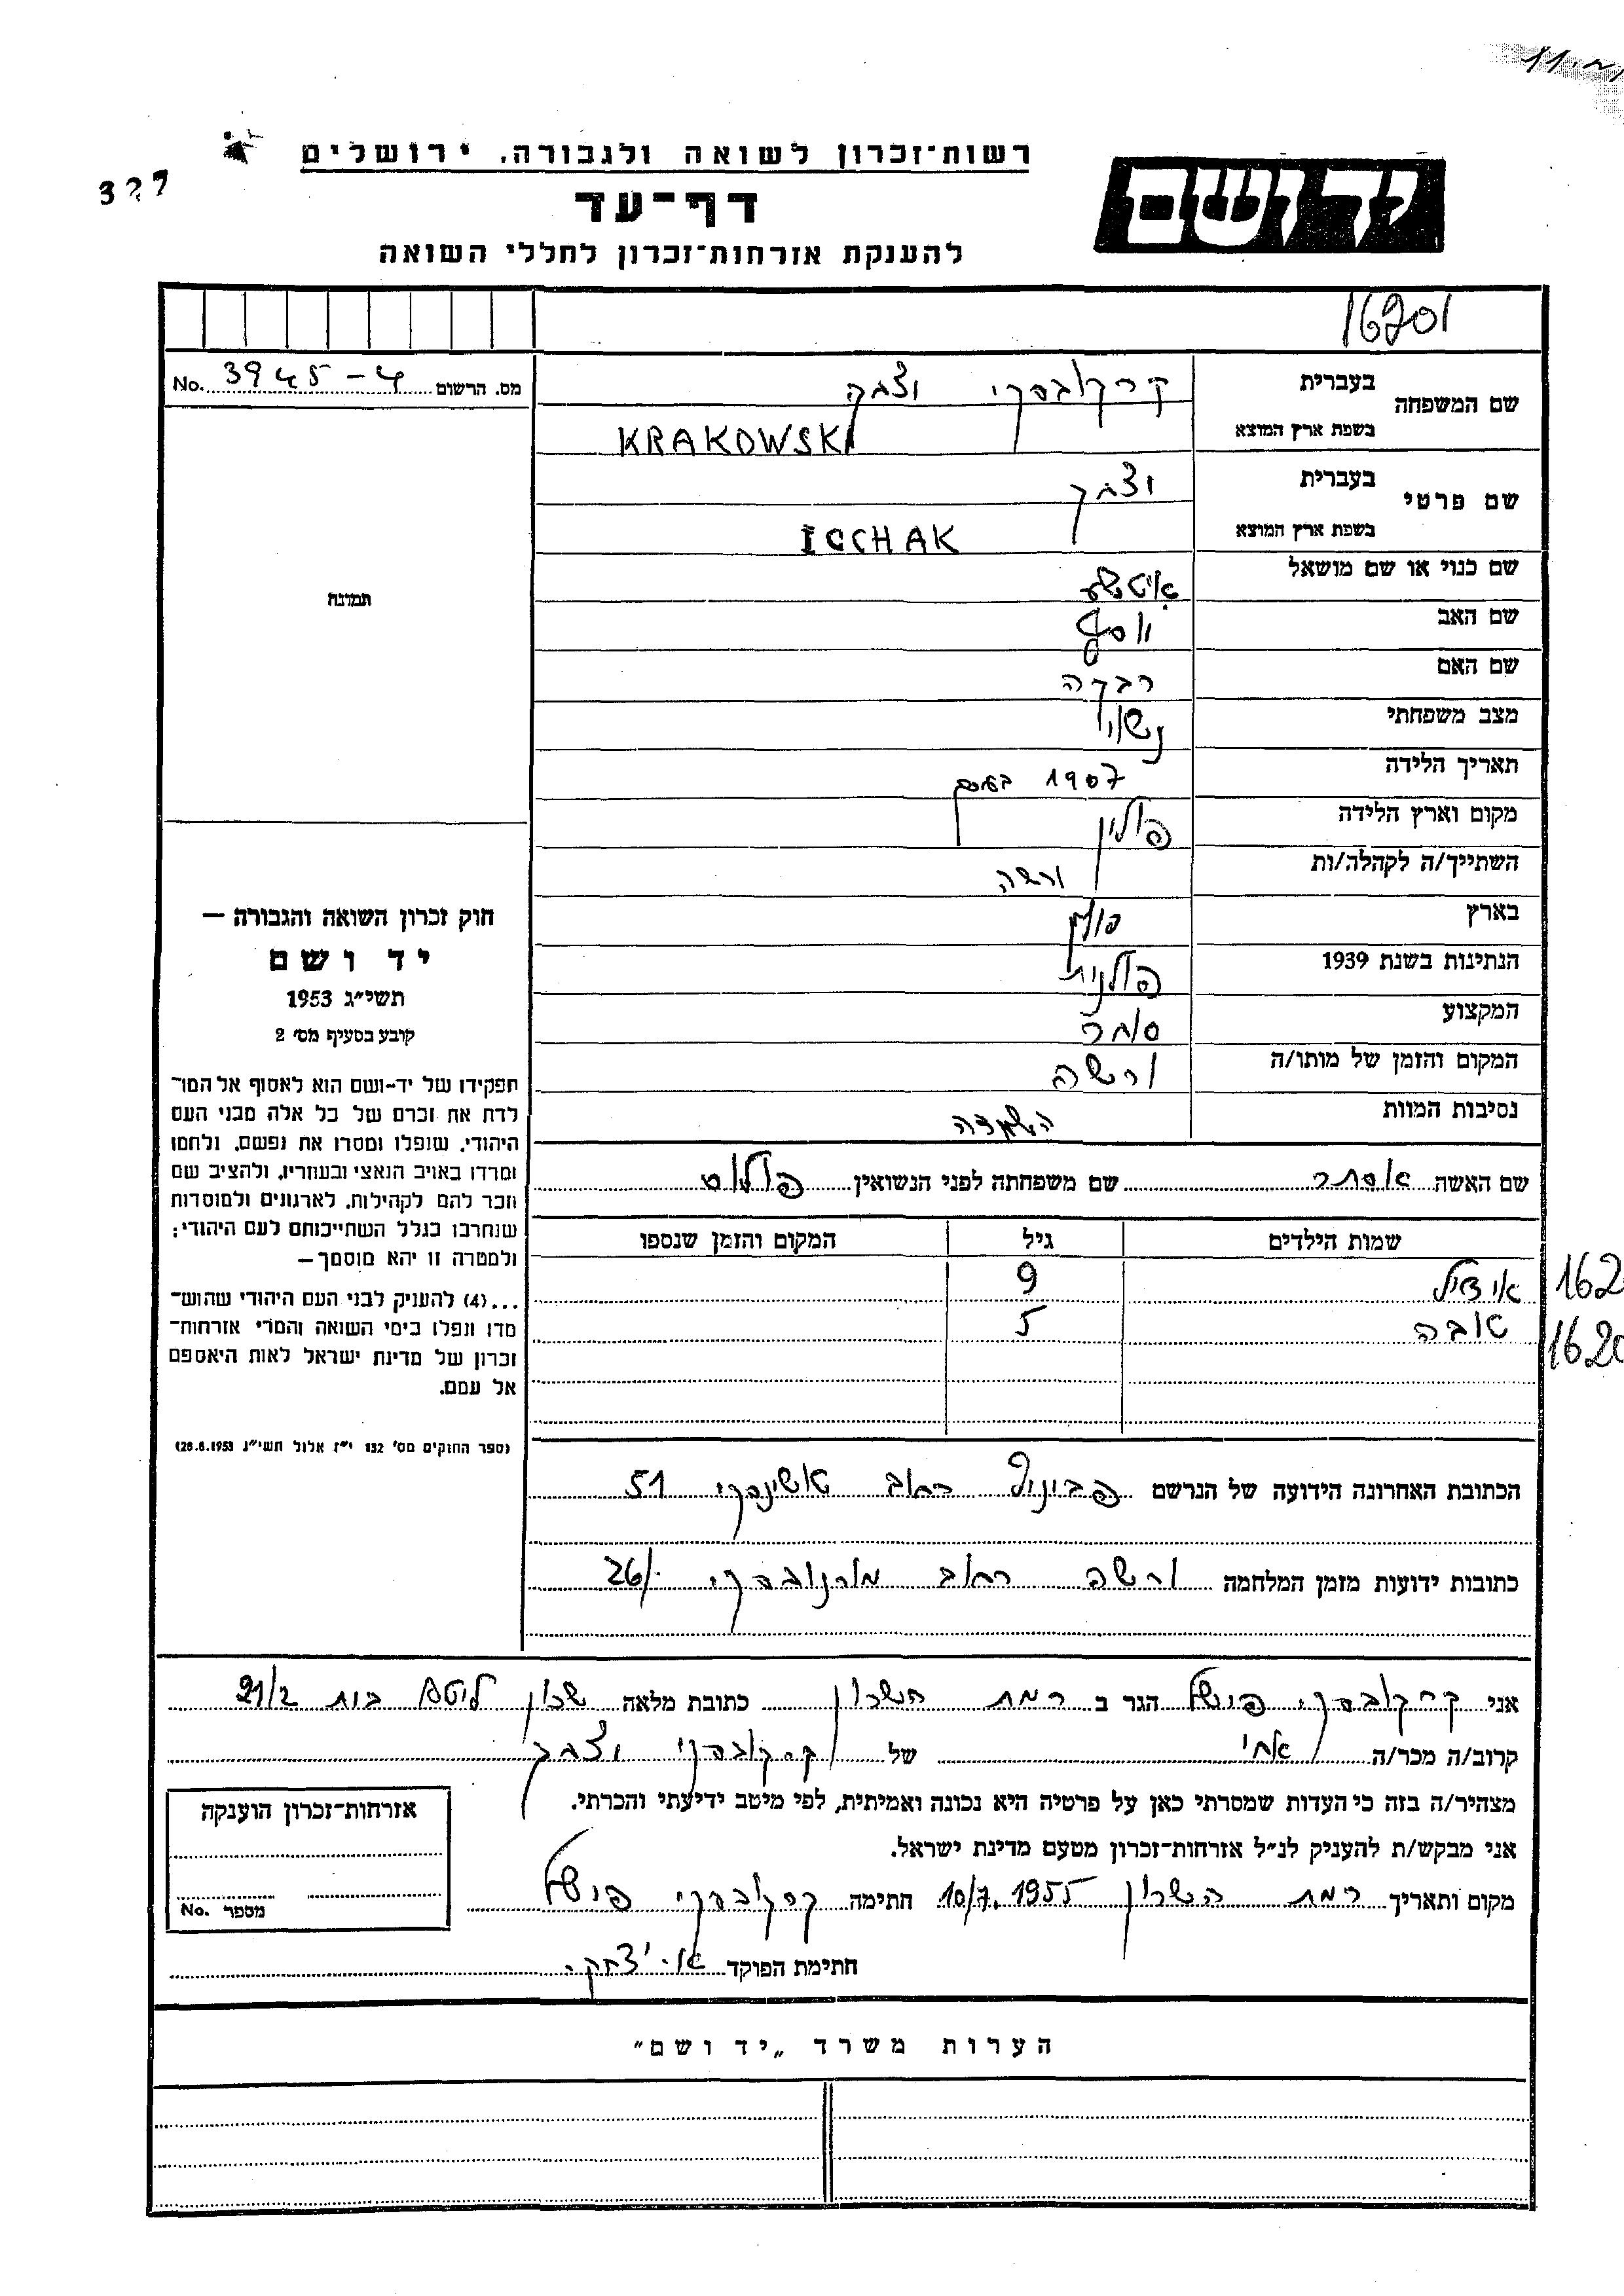 רשות־זכרון לשואה ולגבורה, ירושלים
327
דף־עד
יד ושם
להענקת אזרחות־זכרון לחללי השואה
16201
מס. הרשום 3945-4 No.
שם המשפחה בעברית קרקובסקי יצחק
בשפת ארץ המוצא KRAKOWSKI
שם פרטי בעברית יצחק
בשפת ארץ המוצא ICCHAK
שם כנוי או שם מושאל איטשע
שם האב יוסף
שם האם רבקה
מצב משפחתי נשוי
תאריך הלידה 1907
מקום וארץ הלידה פולין
השתייך/ה לקהלה/ות ורשה
בארץ פולין
הנתינות בשנת 1939 פולנית
המקצוע סוחר
המקום והזמן של מותו/ה ורשה
נסיבות המוות השמדה
תמונה
חוק זכרון השואה והגבורה —
יד ושם
תשי״ג 1953
קובע בסעיף מס׳ 2
תפקידו של יד-ושם הוא לאסוף אל המו־
לדת את זכרם של כל אלה מבני העם
היהודי, שנפלו ומסרו את נפשם, ולחמו
ומרדו באויב הנאצי ובעוזריו, ולהציב שם
וזכר להם לקהילות, לארגונים ולמוסדות
שנחרבו בגלל השתייכותם לעם היהודי;
ולמטרה זו יהא מוסמך—
...(4) להענק לבני העם היהודי שהוש־
מדו ונפלו בימי השואה והמרי אזרחות־
זכרון של מדינת ישראל לאות היאספם
אל עמם.
(ספר החוקים מס׳ 132 י״ז אלול תשי״ג 28.8.1953)
שם האשה אסתר שם משפחתה לפני הנשואין
שמות הילדים גיל המקום והזמן שנספו
9
טובה 5
162
1620
הכתובת האחרונה הידועה של הנרשם רחוב 51
כתובות ידועות מזמן המלחמה ורשה רחוב 26
אני קרקובסקי פישל הגר ב רמת השרון כתובת מלאה שכון בית 21/2
קרוב/ה מכר/ה אחי של קרקובסקי יצחק
מצהיר/ה בזה כי העדות שמסרתי כאן על פרטיה היא נכונה ואמיתית, לפי מיטב ידיעתי והכרתי.
אני מבקש/ת להעניק לנ״ל אזרחות־זכרון מטעם מדינת ישראל.
מקום ותאריך רמת השרון 10/7.1955 חתימה קרקובסקי פישל
חתימת הפוקד
אזרחות־זכרון הוענקה
מספר No.
הערות משרד „יד ושם״